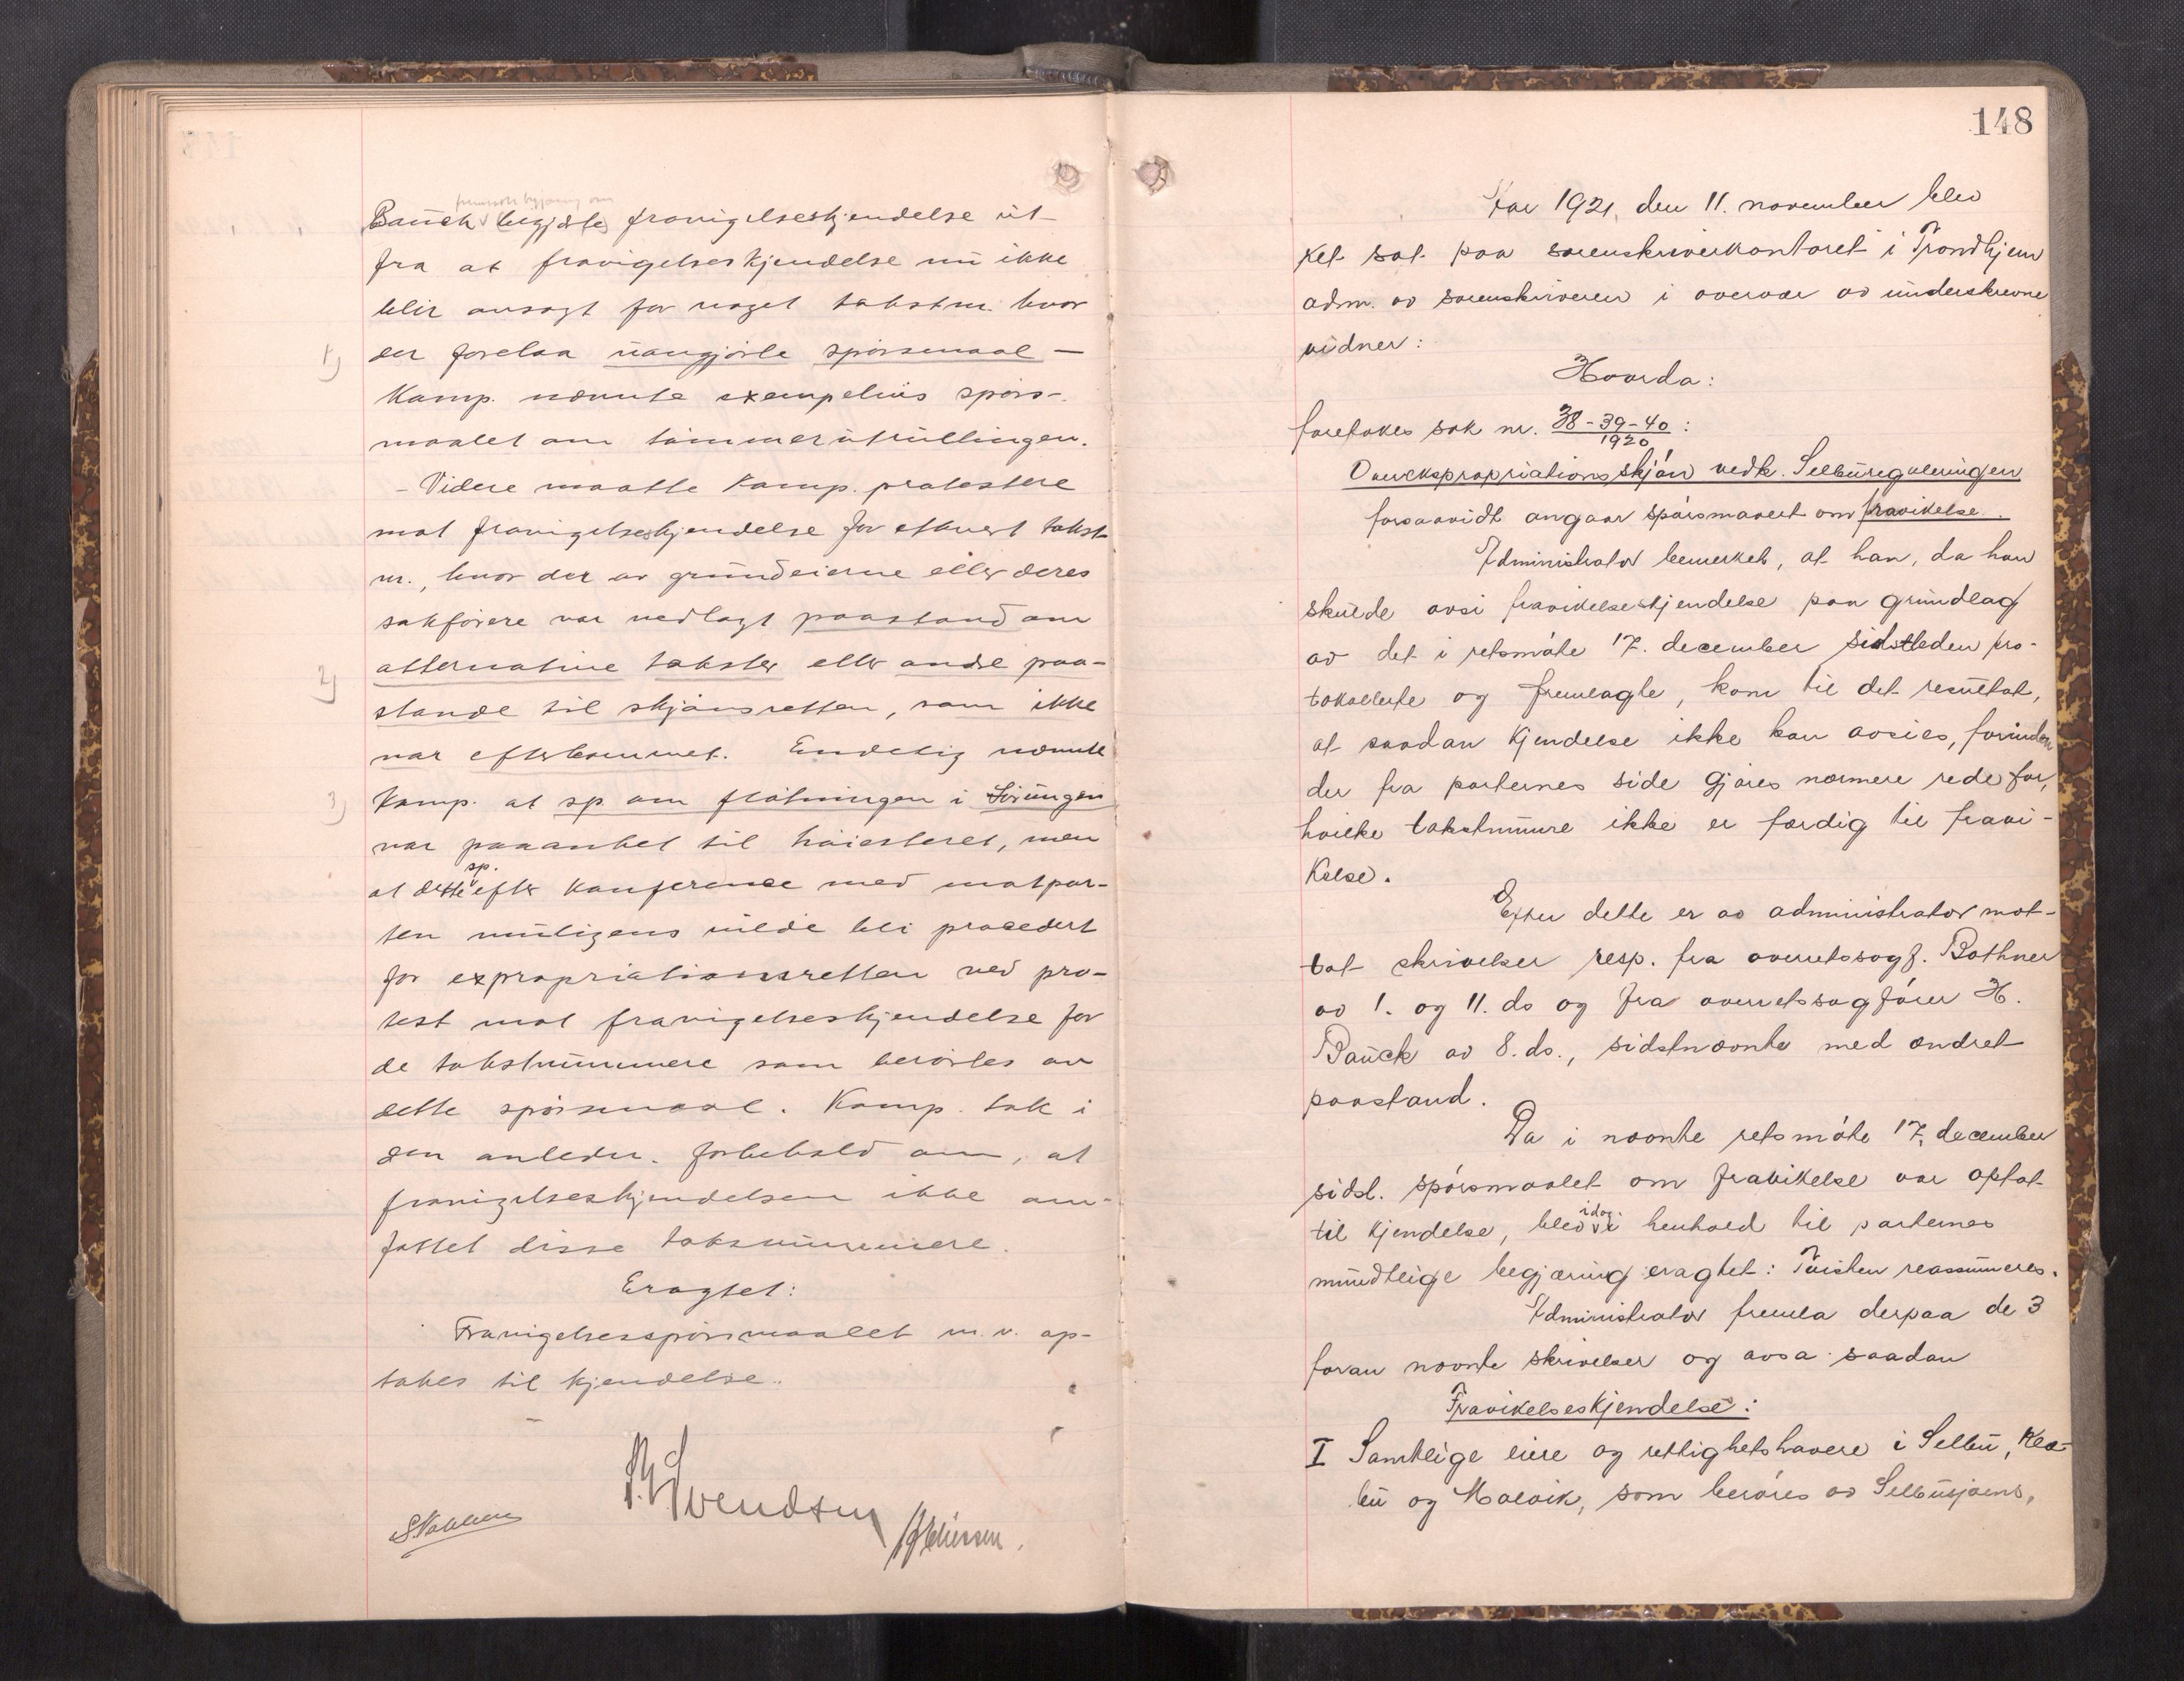 fremsatte begjæring om
Bauck begjærte fravigelseskjendelse ut
fra at fravigelseskjendelse nu ikke
blir avsagt for noget takstnr. hvor
1) der forelaa uavgjorte spörsmaal –
Komp. nævnte exempelvis spörs-
maalet om tömmerutrullingen.
– Videre maatte Komp. protestere
mot fravigelseskjendelse for ethvert takst-
nr., hvor der av grundeierne eller deres
sakförere var nedlagt paastand om
2) alternative takster eller andre paa-
stande til skjönsretten, som ikke
var efterkommet. Endelig nævnte
3) Komp. at sp. om flötningen i Sörungen
var paaanket til höiesteret, men
at dette sp. efter konference med motpar-
ten muligens vilde bli procedert
for expropriationsretten ved pro-
test mot fravigelseskjendelse for
de takstnummere som berörtes av
dette spörsmaal. Komp. tok i
den anledn. forbehold om, at
fravigelseskjendelsen ikke om-
fattet disse takstnummere.
Eragtet:
Fravigelsesspörsmaalet m.v. op-
takes til kjendelse.
Svendsen
148
Aar 1921, den 11. november blev
ret sat paa sorenskriverkontoret i Trondhjem
adm. av sorenskriveren i overvær av underskrevne
vidner:
Hvorda:
foretokes sak nr. 38-39-40/1920:
Overekspropriationsskjön vedk. Selbureguleringen
forsaavidt angaar spörsmaalet om fravikelse.
Administrator bemerket, at han, da han
skulde avsi fravikelseskjendelse paa grundlag
av det i retsmöte 17. december sidstleden pro-
tokollerte og fremlagte, kom til det resultat,
at saadan kjendelse ikke kan avsies, forinden
der fra parternes side gjöres nærmere rede for,
hvilke takstnumre ikke er færdig til fravi-
kelse.
Efter dette er av administrator mot-
tat skrivelser resp. fra overretssagf. Bothner
av 1. og 11. ds og fra overretssagförer H.
Bauck av 8. ds., sidstnævnte med ændret
paastand.
Da i nævnte retsmöte 17. december
sidstl. spörsmaalet om fravikelse var optat
til kjendelse, blev idag i henhold til parternes
mundtlige begjæring eragtet: Tvisten reassumeres.
Administrator fremla derpaa de 3
foran nævnte skrivelser og avsa saadan
Fravikelseskjendelse:
I Samtlige eiere og rettighetshavere i Selbu, Klæ-
bu og Malvik, som beröres av Selbusjöens,